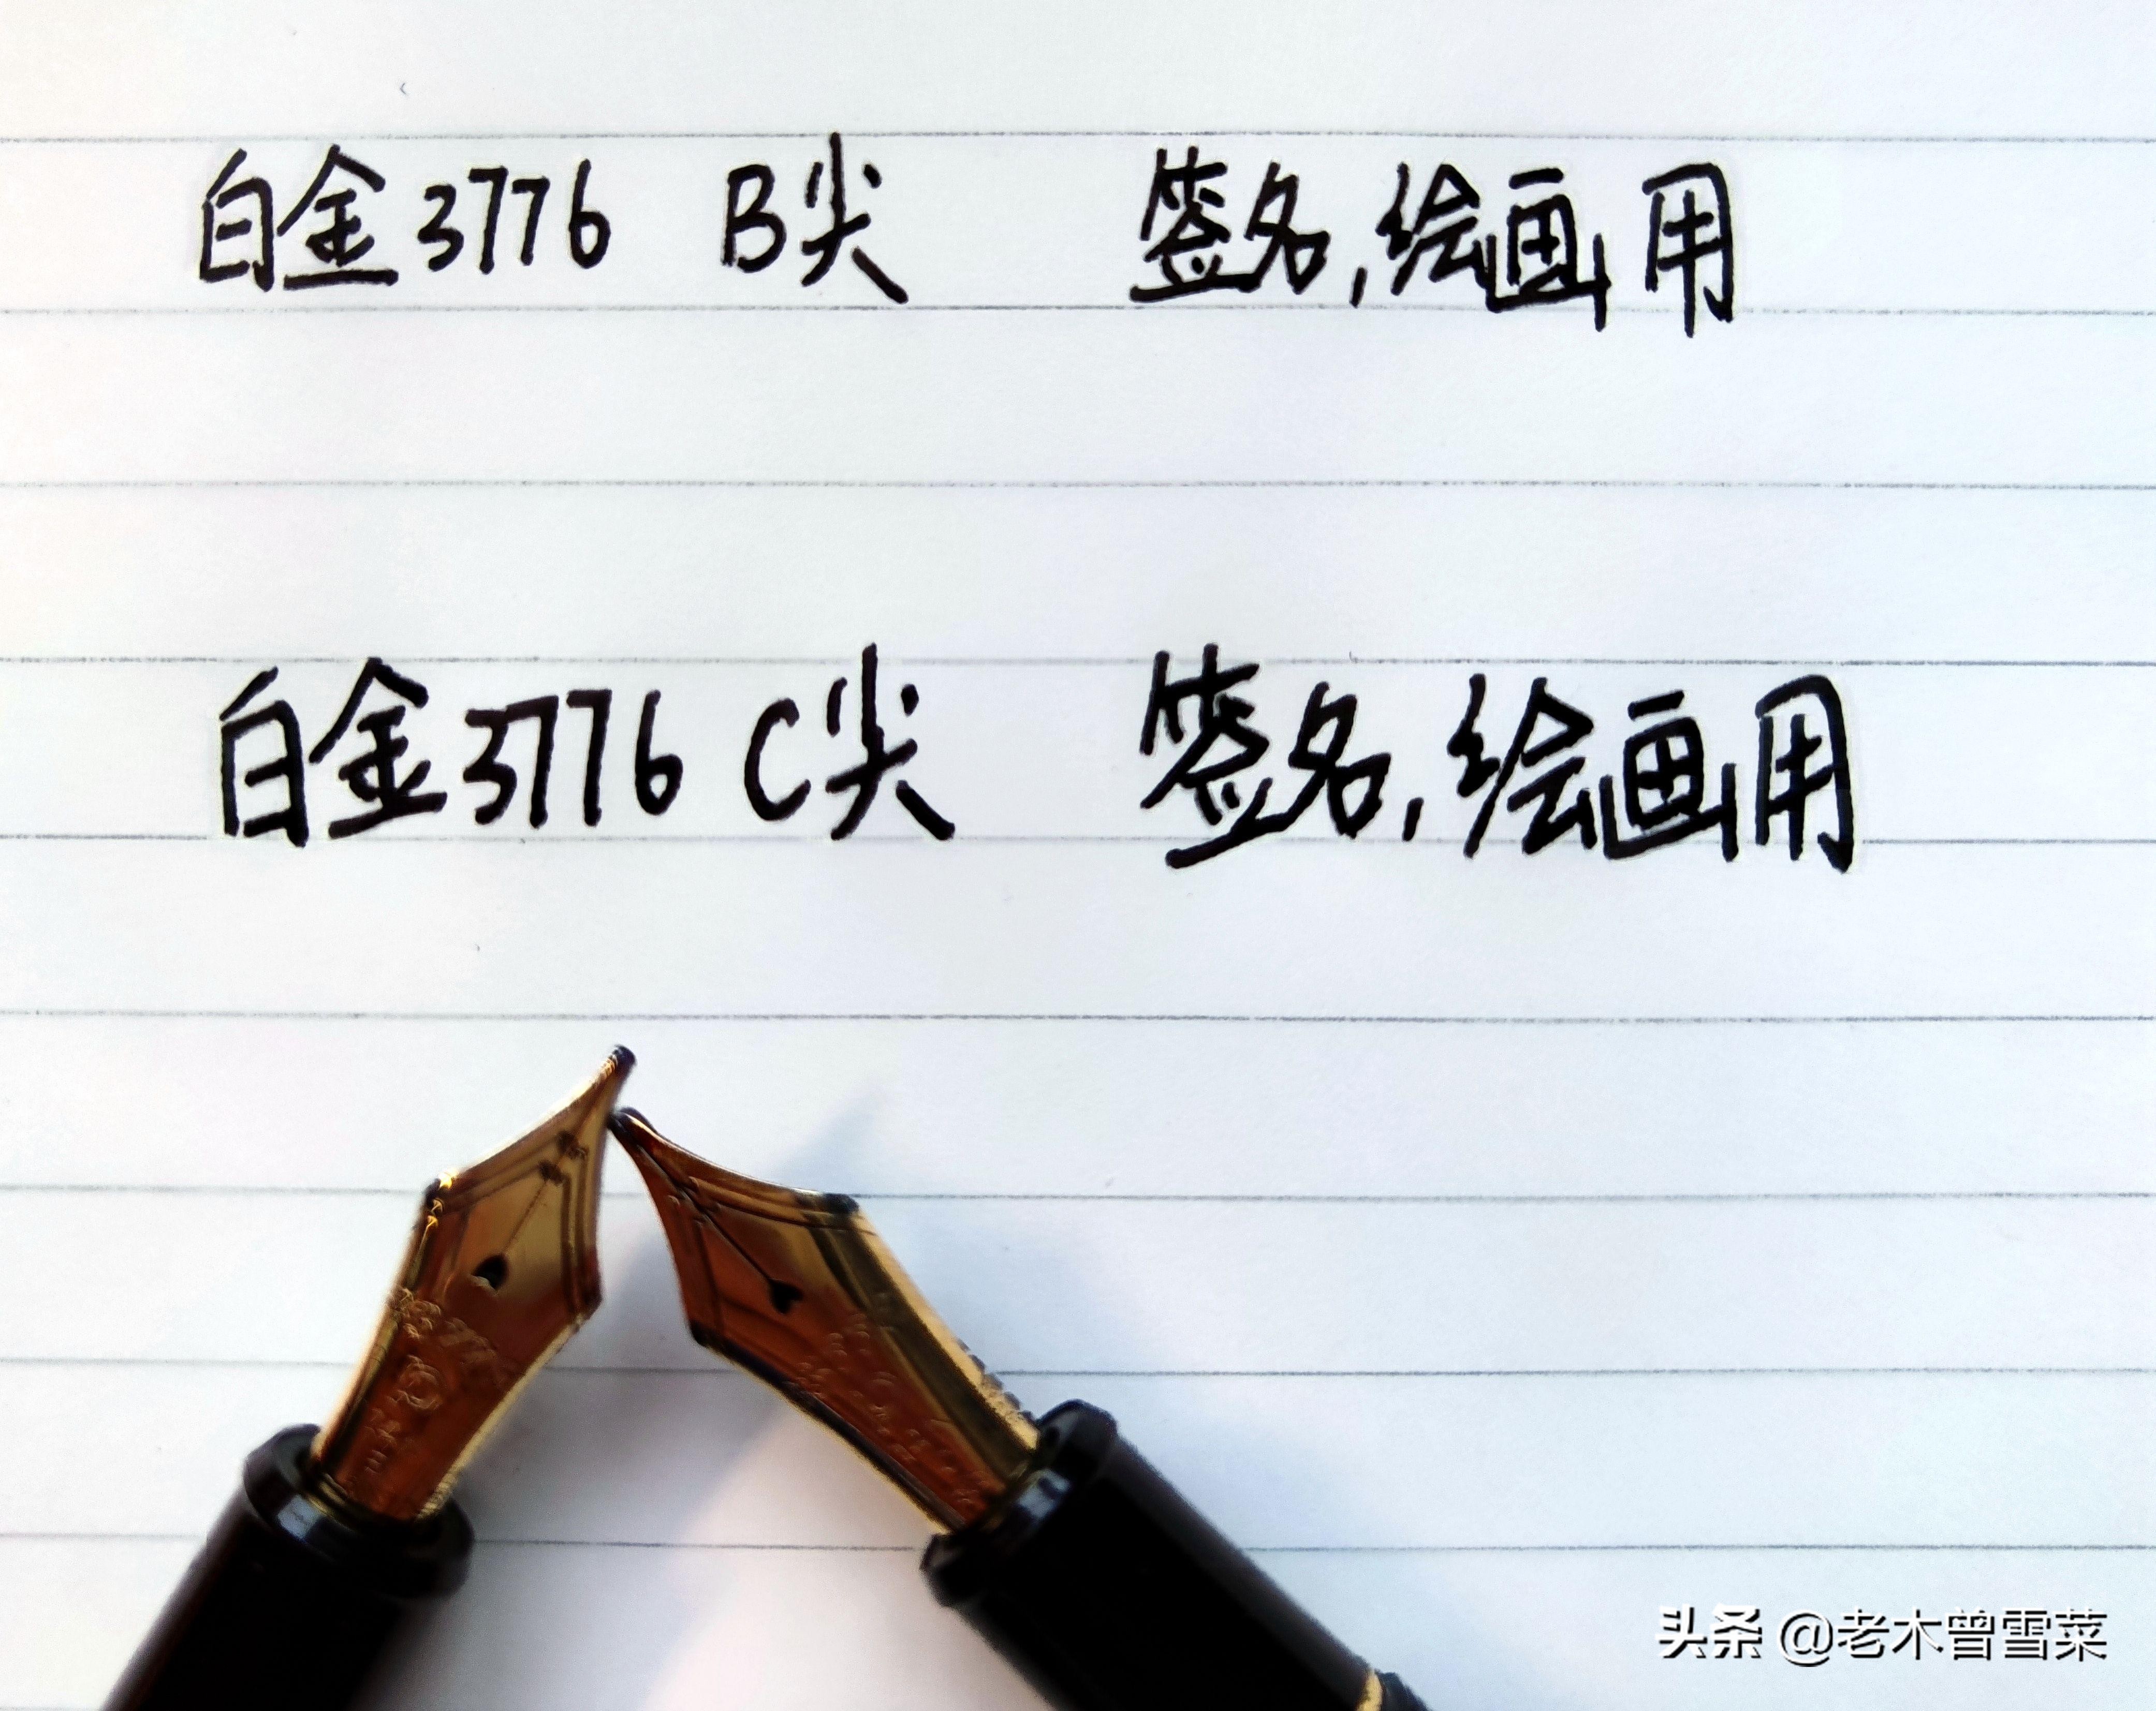 白金3776 B尖 签名,绘画用
白金3776 C尖 签名,绘画用
头条 @老木曾雪菜